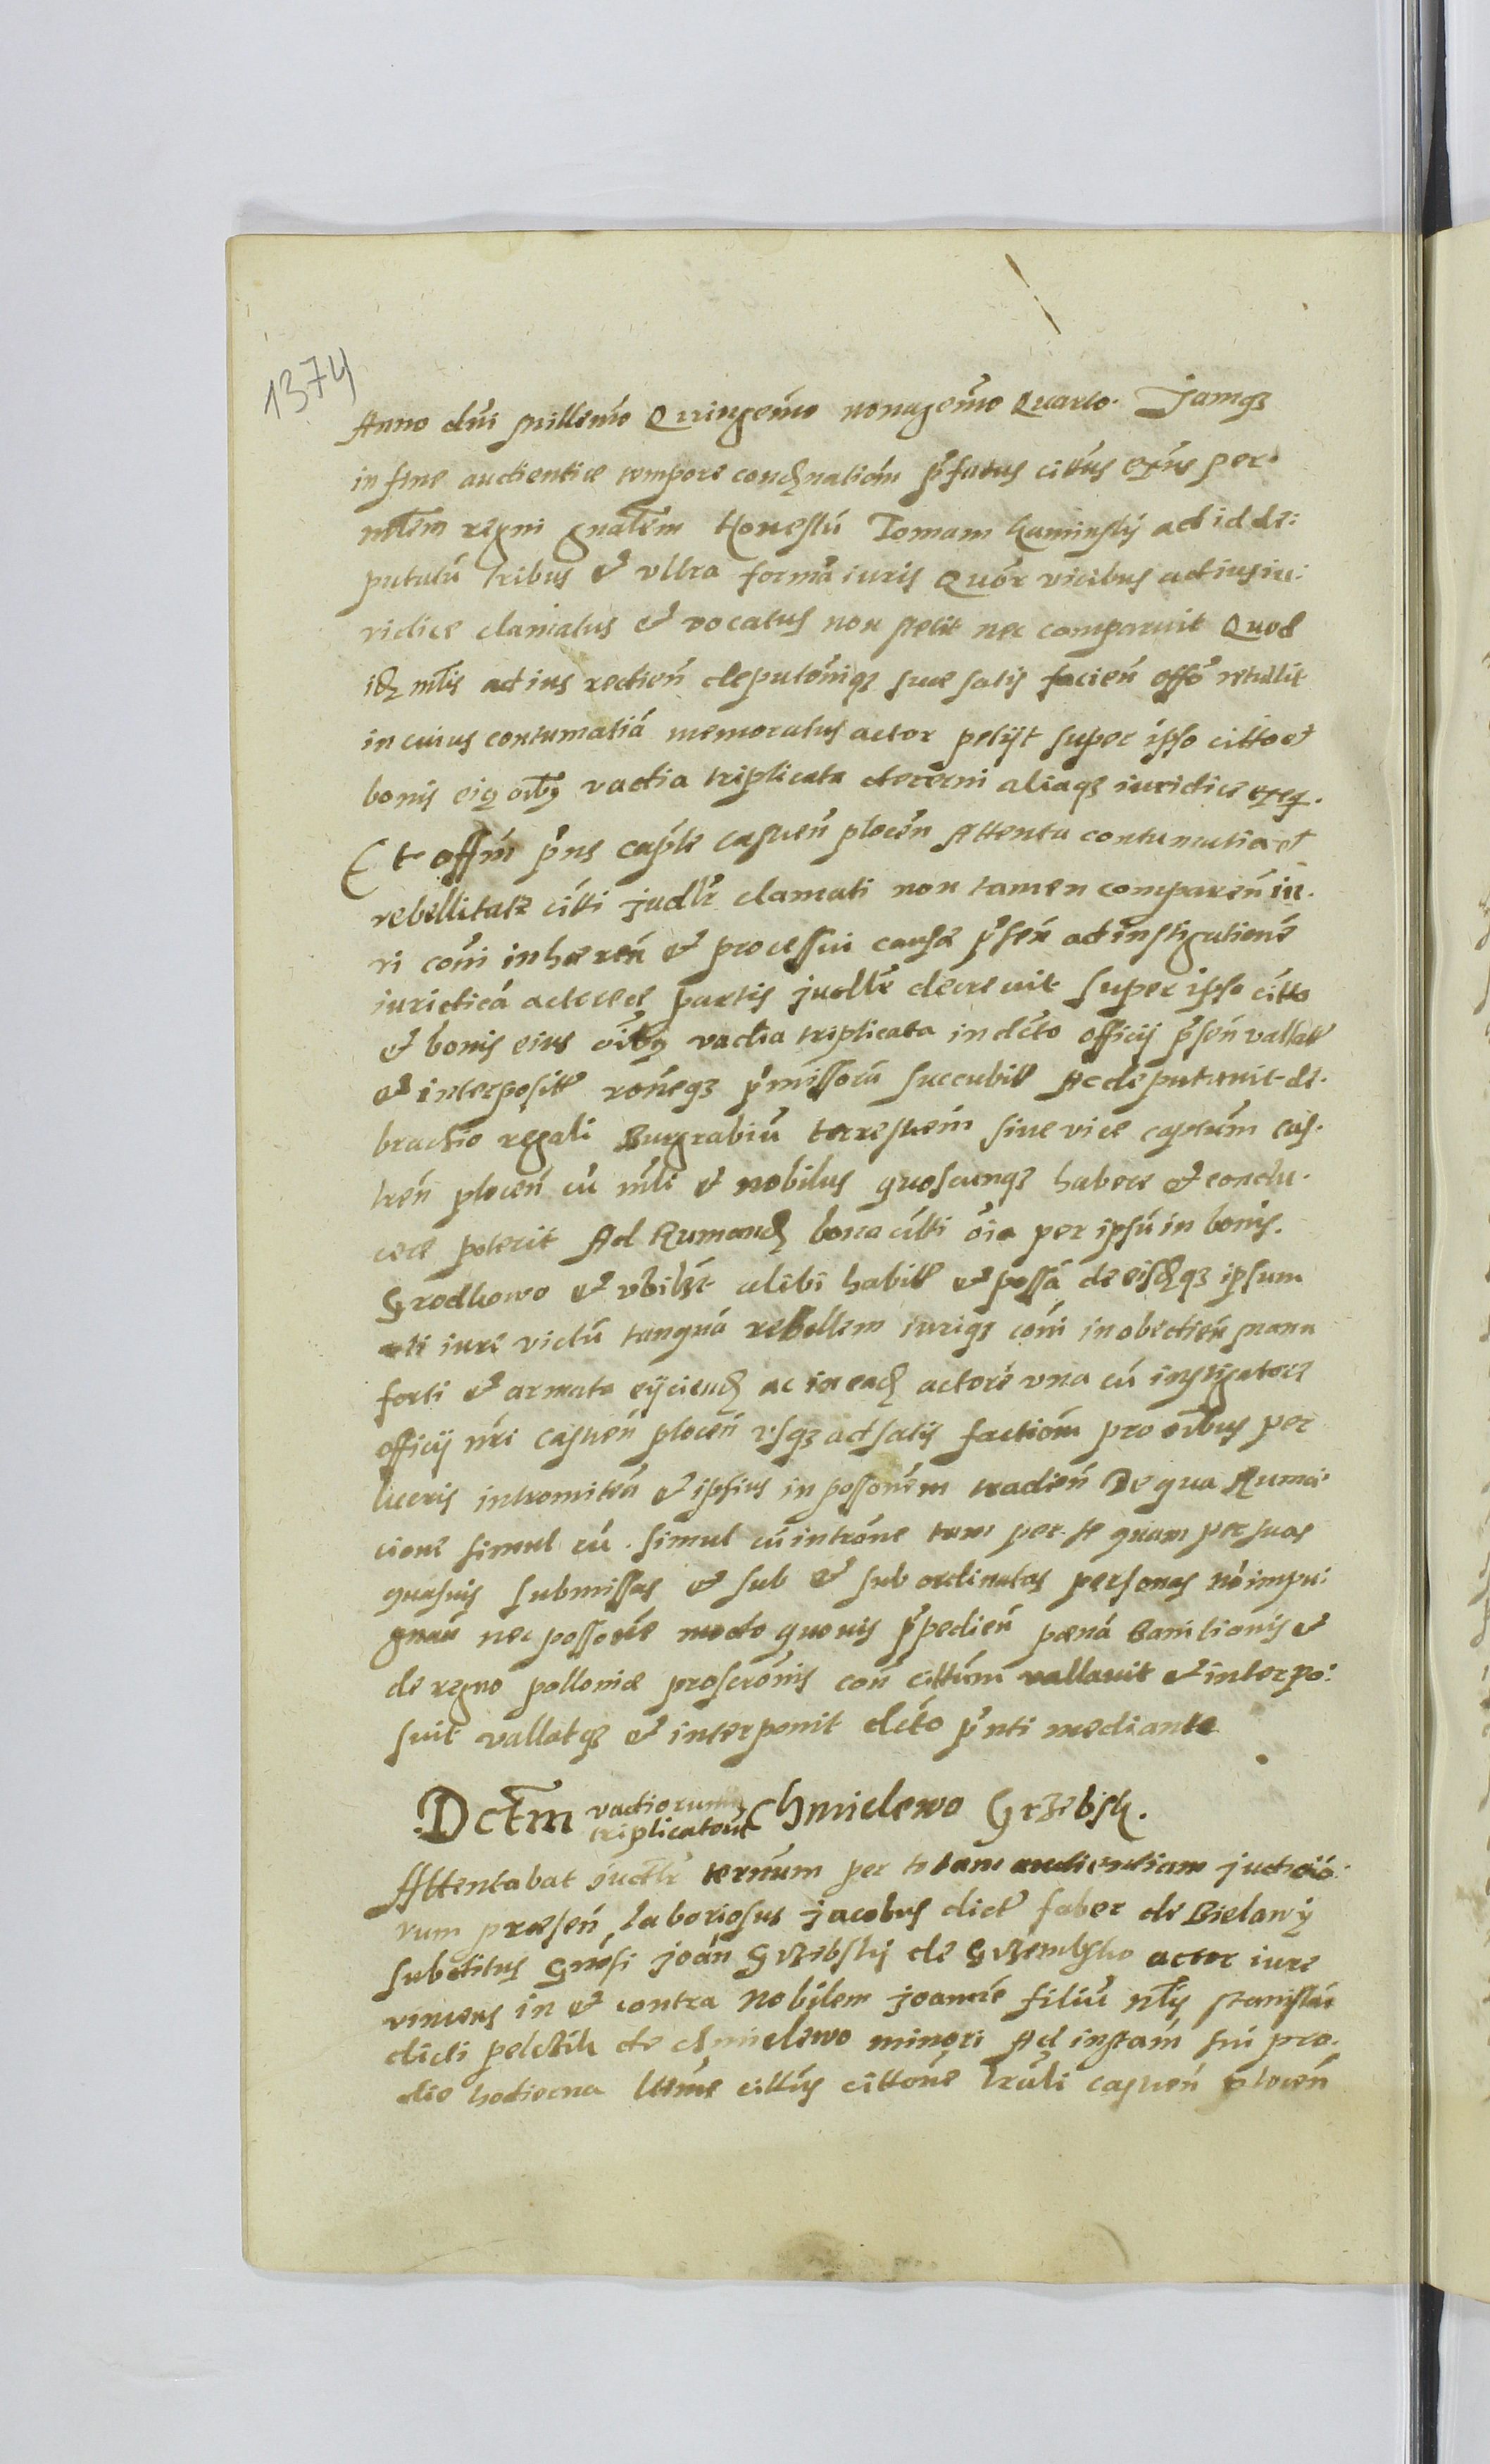 1374
Anno dni Millemo Quingemo nonagemo Quarto. Jamqз
in fine audientiæ tempore condnationi pfatus cittus exns per
mtem regni gnalem Honestu Tomam Kaminskÿ ad id de:
putatu tribus et ultra forma iuris Quor vicibus ad ius iu:
ridice clamatus et vocatus non stetit nec comparuit Quod
idз mlis ad ius redien deputoniqз suæ satis facien offo retulit
in cuius contumatiá memoratus actor petÿt super ipso citto et
bonis eiq oibз vadia triplicata decerni aliaqз iuridice exeq.
Et offm pns caple castren plocen Attenta contumatia et
rebellitate citti judlr clamati non tamen comparen iu.
ri coni inhæren et processui causæ psen ad instigatione
iuridicá actoreæ partis judlr decrevit super ipso citto
et bonis eius oibз vadia triplicata in dcto officij psen vallatt
et interposite roneqз pmissoru succubitt Ac deputavit de.
brachio regali Burgrabiu terrestrem sive vice captum cas.
tren plocen cu mli et nobilus quoscunqз habere et condu.
cere poterit Ad Rumand bona citti oia per ipsu in bonis.
Grodkowo et ubilзt alibi habitt et possa de eisdqз ipsum
uti iure victu tanquá rebellem iuriqз coni inobedien manu
forti et armata eÿciend ac in ead actore una cu instigatore
officÿ nri castren plocen usqз ad satis factiom pro oibus per
lucris intromitten et ipsius in possonem tradien De qua Ruma:
cione simul cu simul cu introne tam per se quam per suas
quasvis submissas et sub et subordinatas personas no impu:
gnan nec possone modo quovis ppedien pæna Banitionis et
de regno polloniæ proscronis con cittum vallavit et interpo:
suit vallatqз et interponit dcto pnti mediante
Dctm vadiorum triplicatoru Chmielewo Grzebsk.
Attentabat judlr ternum per totam audientiam judicio:
rum præsen laboriosus jacobus dict faber de Bielawÿ
subditus Gnosi joan Grzebskÿ de Grzembsko actor iure
vincens in et contra Nobilem joanne filiu nlis stanislai
dicti pelczik de chmielewo minori Ad instam sui pro.
die hodierna litteris cittus cittone lrali castren plocen